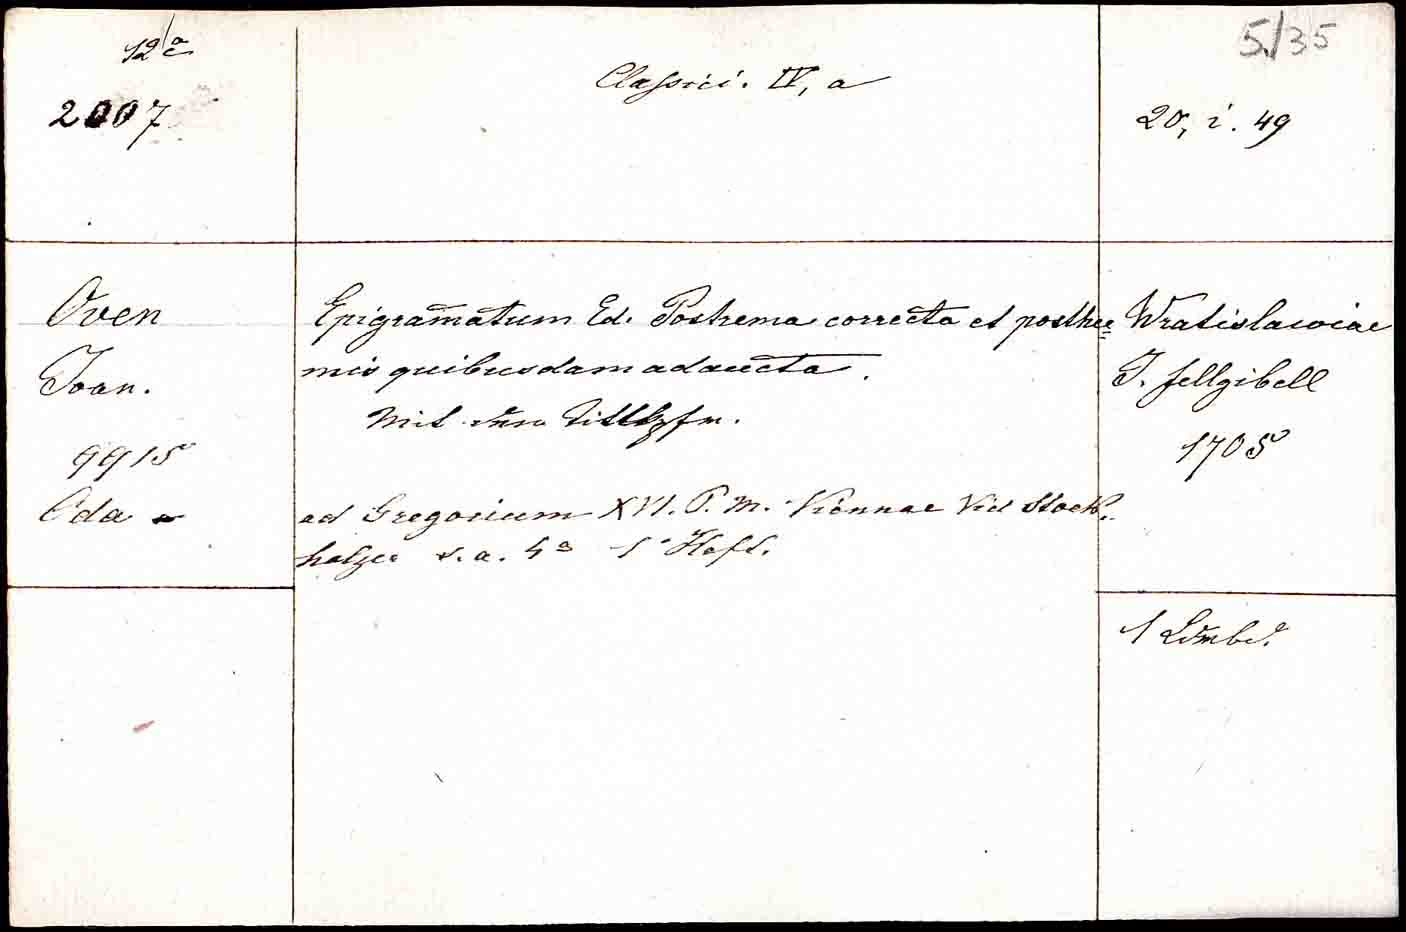 12°
2007
Classici. IV, a
5/35
20, i. 49
Oven
Joan.
9915
Oda
Epigram̄atum Ed. Postrema correcta et posthu=
mis quibusdam adaucta.
Mit
ad Gregorium XVI. P. M. Viennae Vid Stock=
holzer s.a. 4° 1 Heft.
Wratislawiae
J. fellgibell
1705
1 Ldrnbd.